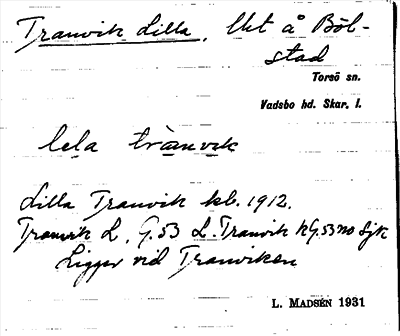 Tranvik Lilla. Uct å Böl-
stad
Torsö sn.
Vadsbo hd. Skar. l.
lela trànvik
Lilla Tranvik kb. 1912.
Tranvik L. G.53 L. Tranvik kG.53 no Sjk
Ligger vid Tranviken
L. MADSÉN 1931